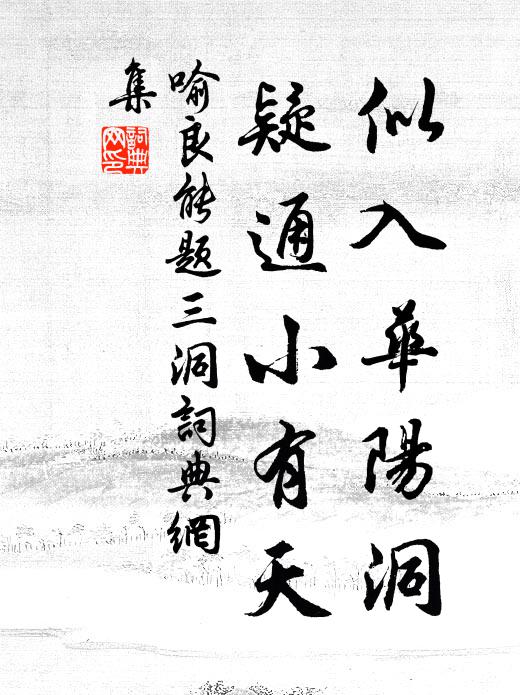 似入華陽洞
疑通小有天
喻良能題三洞詞典網
集
詞典網印